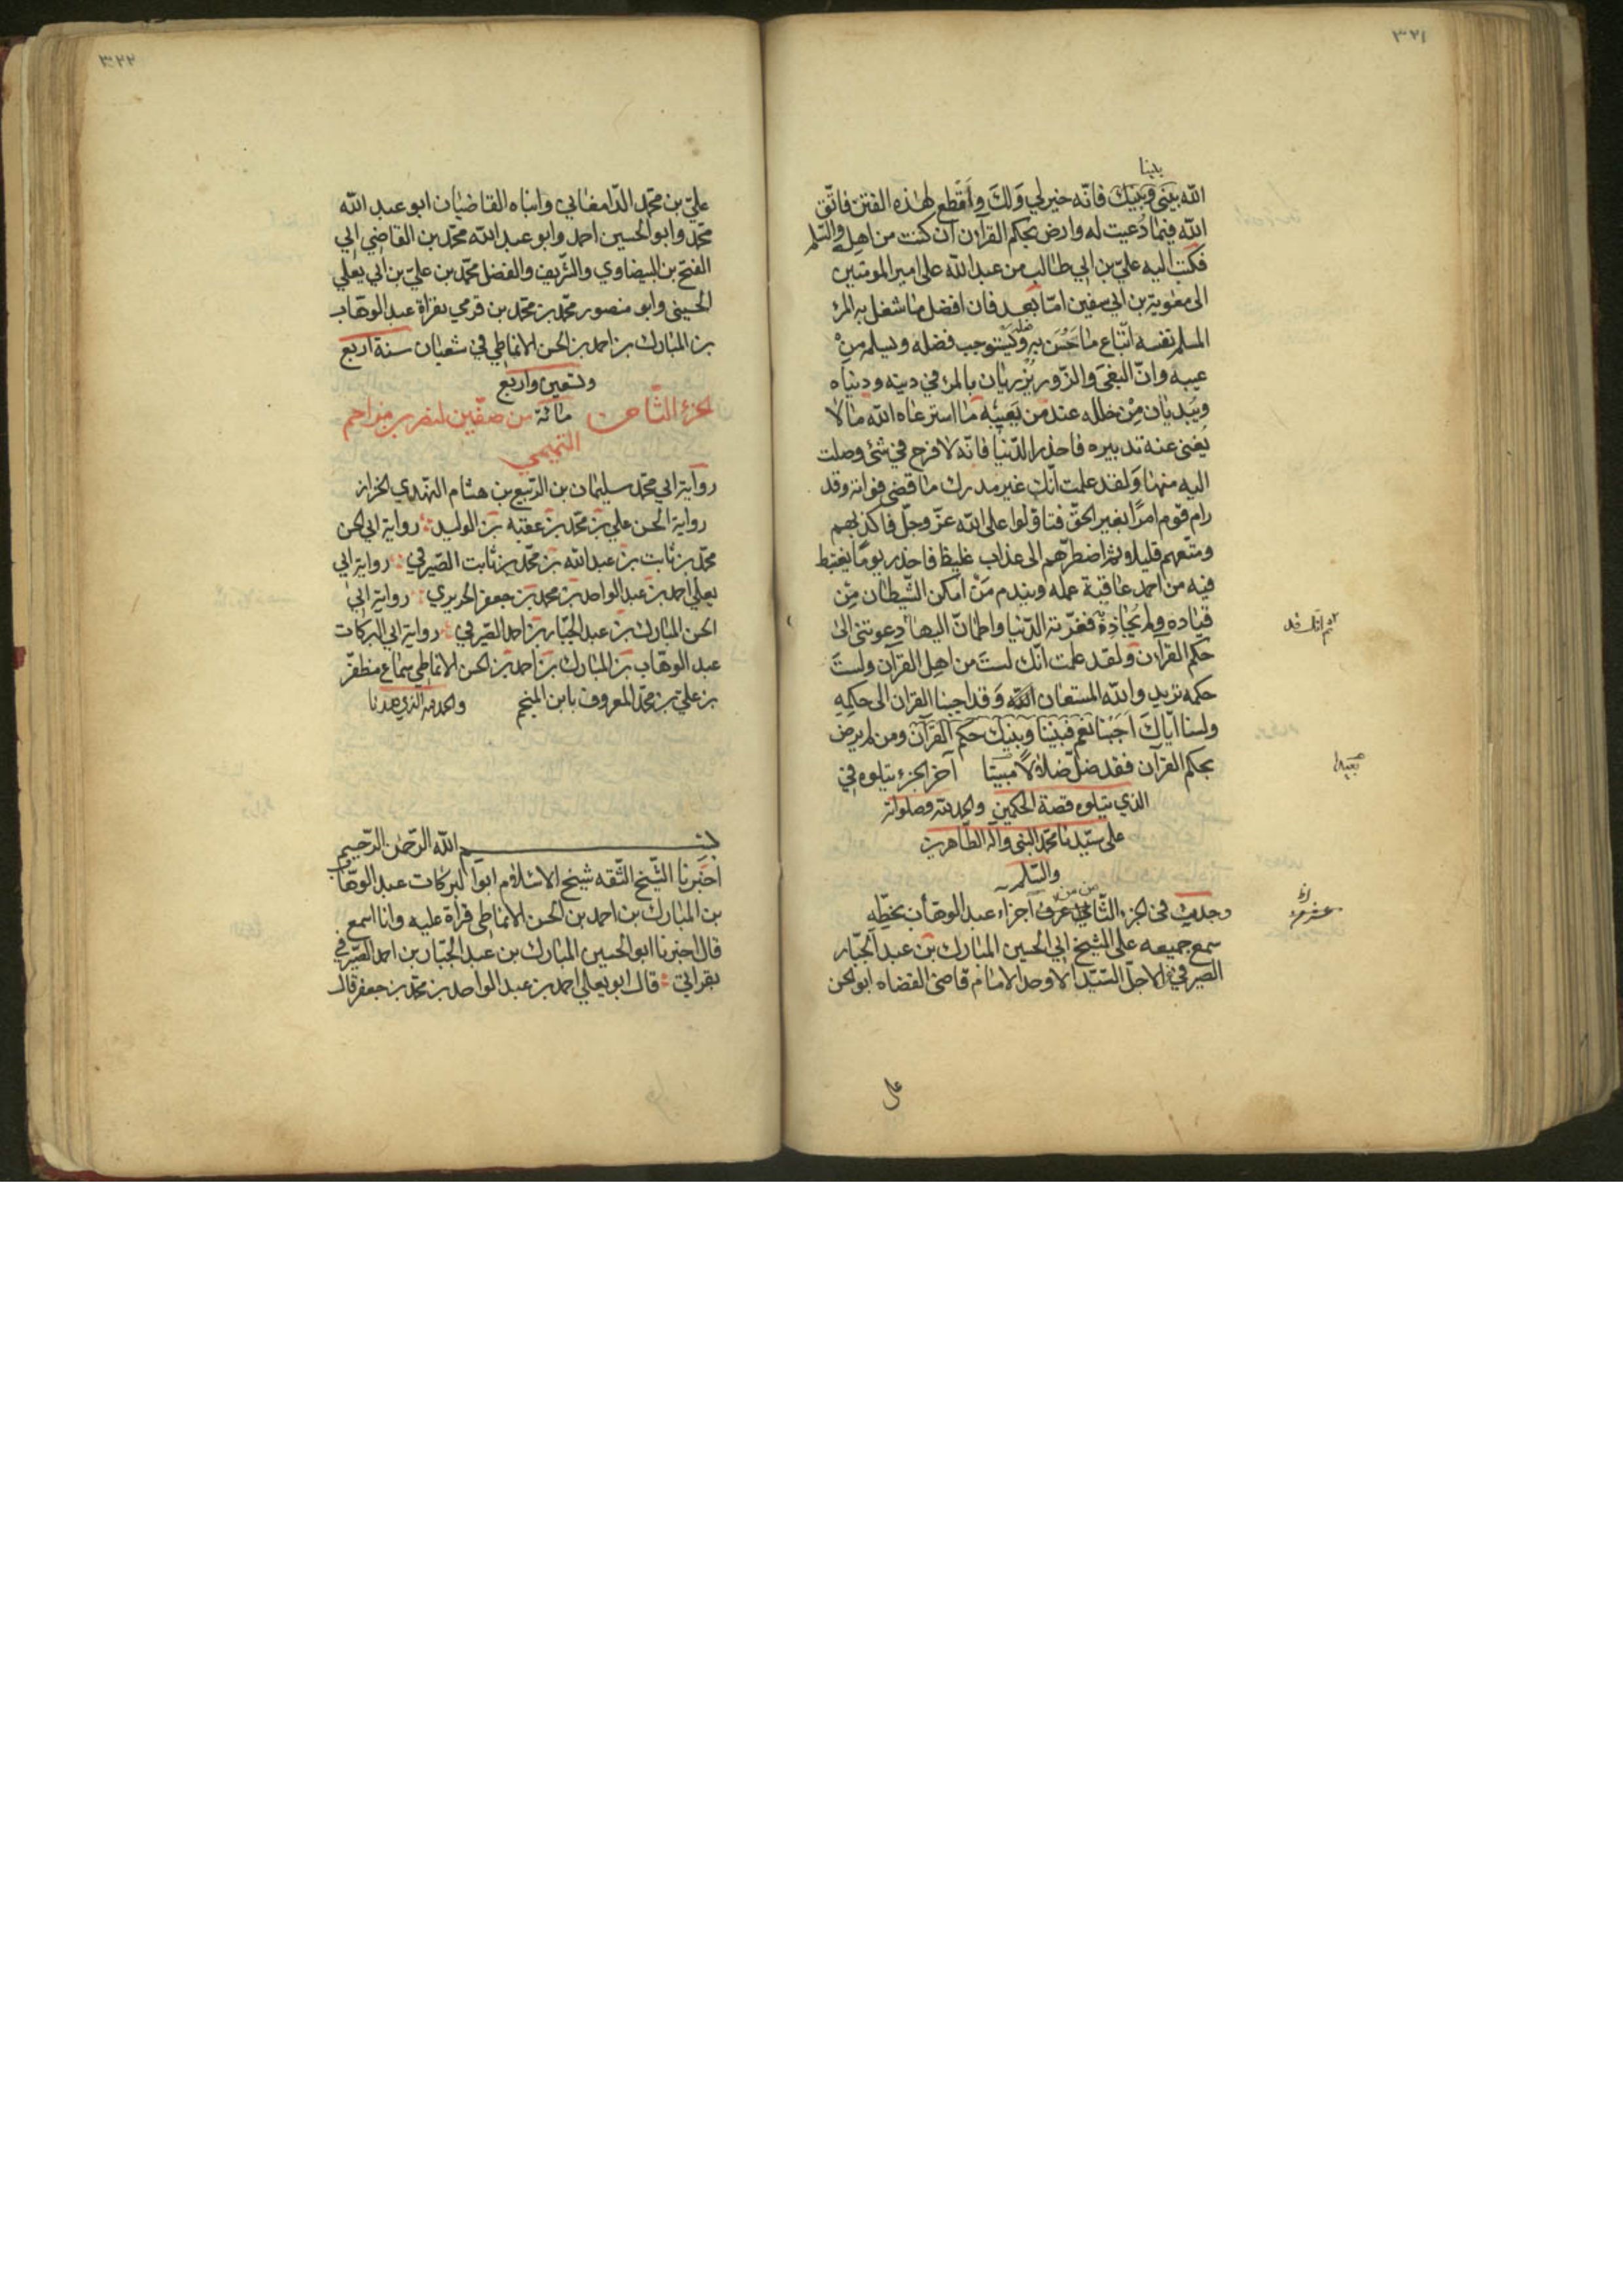 ٣٢١
بيننا
الله بيني وبينك فانّه خير لي وَلكَ وأقطع لهذه الفتن فاتّق
الله فيما دُعيت له وارض بحكم القرآن ان كنت من اهله والسّلم
فكتب اليه عليّ بن ابي طالب من عبد الله علي امير المومنين
الى معوية بن ابي سفين امّا بعد فان افضل ما شغل به المرء
المسلم نفسه اتّباع ما حَسُن به فعله ويَستوجب فضله ويسلم مِنْ
عيبه وانّ البغيَ والزّور يُزريان بالمرء في دينه ودنياه
ويُبديان مِنْ خلله عند مَن يَعيبُه ما استرعاه الله ما لا
يُغني عنه تدبيره فاحذر الدّنيا فانّه لا فرح في شئ وصلت
اليه منها وَلقد علمت انّك غير مدرك ما قضى فواته وقد
رام قوم امرًا بغير الحقّ فتاوّلوا على الله عزّ وجلّ فاكذبهم
ومتّعهم قليلا ثمّ اضطرّهم الى عذاب غليظ فاحذر يومًا يغتبط
فيه من احمد عاقبة عمله ويندم مَنْ امكن الشّيطان مِن
قياده ولم يُحاذِهْ فغرّته الدّنيا واطمانّ اليها دعوتني الى
ثم انّك قد
حكم القرآن ولقد علمت انّك لستَ من اهل القرآن ولستَ
حكمه تريد والله المستعان وَقد اجبنا القران الى حكمه
ولسنا ايّاكَ اَجَبْنا نعم فبيننا وبينك حكم القرآن ومن لم يرض
بحكم القرآن فقد ضلّ ضلالًا مبينا آخر الجزء يتلوه في
الذي يتلوه قصة الحكمين والحمد لله وصلواته
على سيّدنا محمّد النبي وآله الطّاهرين
والسّلم
وجدت في الجزء الثّاني عشر من اجزاء عبد الوهّاب بخطّه
سمع جميعه على الشيخ ابي الحسين المبارك بن عبد الجبّار
الصيرفي الاجلّ السّيّد الاوحد الامام قاضي القضاه ابو الحسن
على
٣٢٢
عليّ بن محمّد الدّامغاني وابناه القاضيان ابو عبد الله
محمّد وابو الحسين احمد وابو عبد الله محمّد بن القاضي ابي
الفتح بن البيضاوي والشّريف والفضل محمّد بن عليّ بن ابي يعلي
الحسيني وابو منصور محمّد بن محمّد بن قرمي بقراة عبد الوهّاب
بن المبارك بن احمد بن الحسن الانماطي في شعبان سنة اربع
وتسعين واربع
مائة
الجزء الثّامن من صفّين لنصر بن مزاحم
التميمي
رواية ابي محمّد سليمان بن الرّبيع بن هشام النّهدي الخزاز
رواية الحسن علي بن محمّد بن عقبة بن الوليد رواية ابي الحسن
محمّد بن ثابت بن عبد الله بن محمّد بن ثابت الصّيرفي رواية ابي
يعلي احمد بن عبد الواحد بن محمد بن جعفر الحريري رواية ابي
الحسن المبارك بن عبد الجبّار بن احمد الصّيرفي رواية ابي البركات
عبد الوهّاب بن المبارك بن احمد بن الحسن الانماطي سماع مظفّر
بن عليّ بن محمّد المعروف بابن المنجم والحمد لله الذي هدنا
بسم الله الرّحمن الرّحيم
اخبرنا الشّيخ الثّقه شيخ الاسلام ابوا البركات عبد الوهّاب
بن المبارك بن احمد بن الحسن الانماطي قرأة عليه وانا اسمع
قال اخبرنا ابو الحسين المبارك بن عبد الجبّار بن احمد الصّيرفي
بقراتي قال ابو يعلي احمد بن عبد الواحد بن محمّد بن جعفر قال